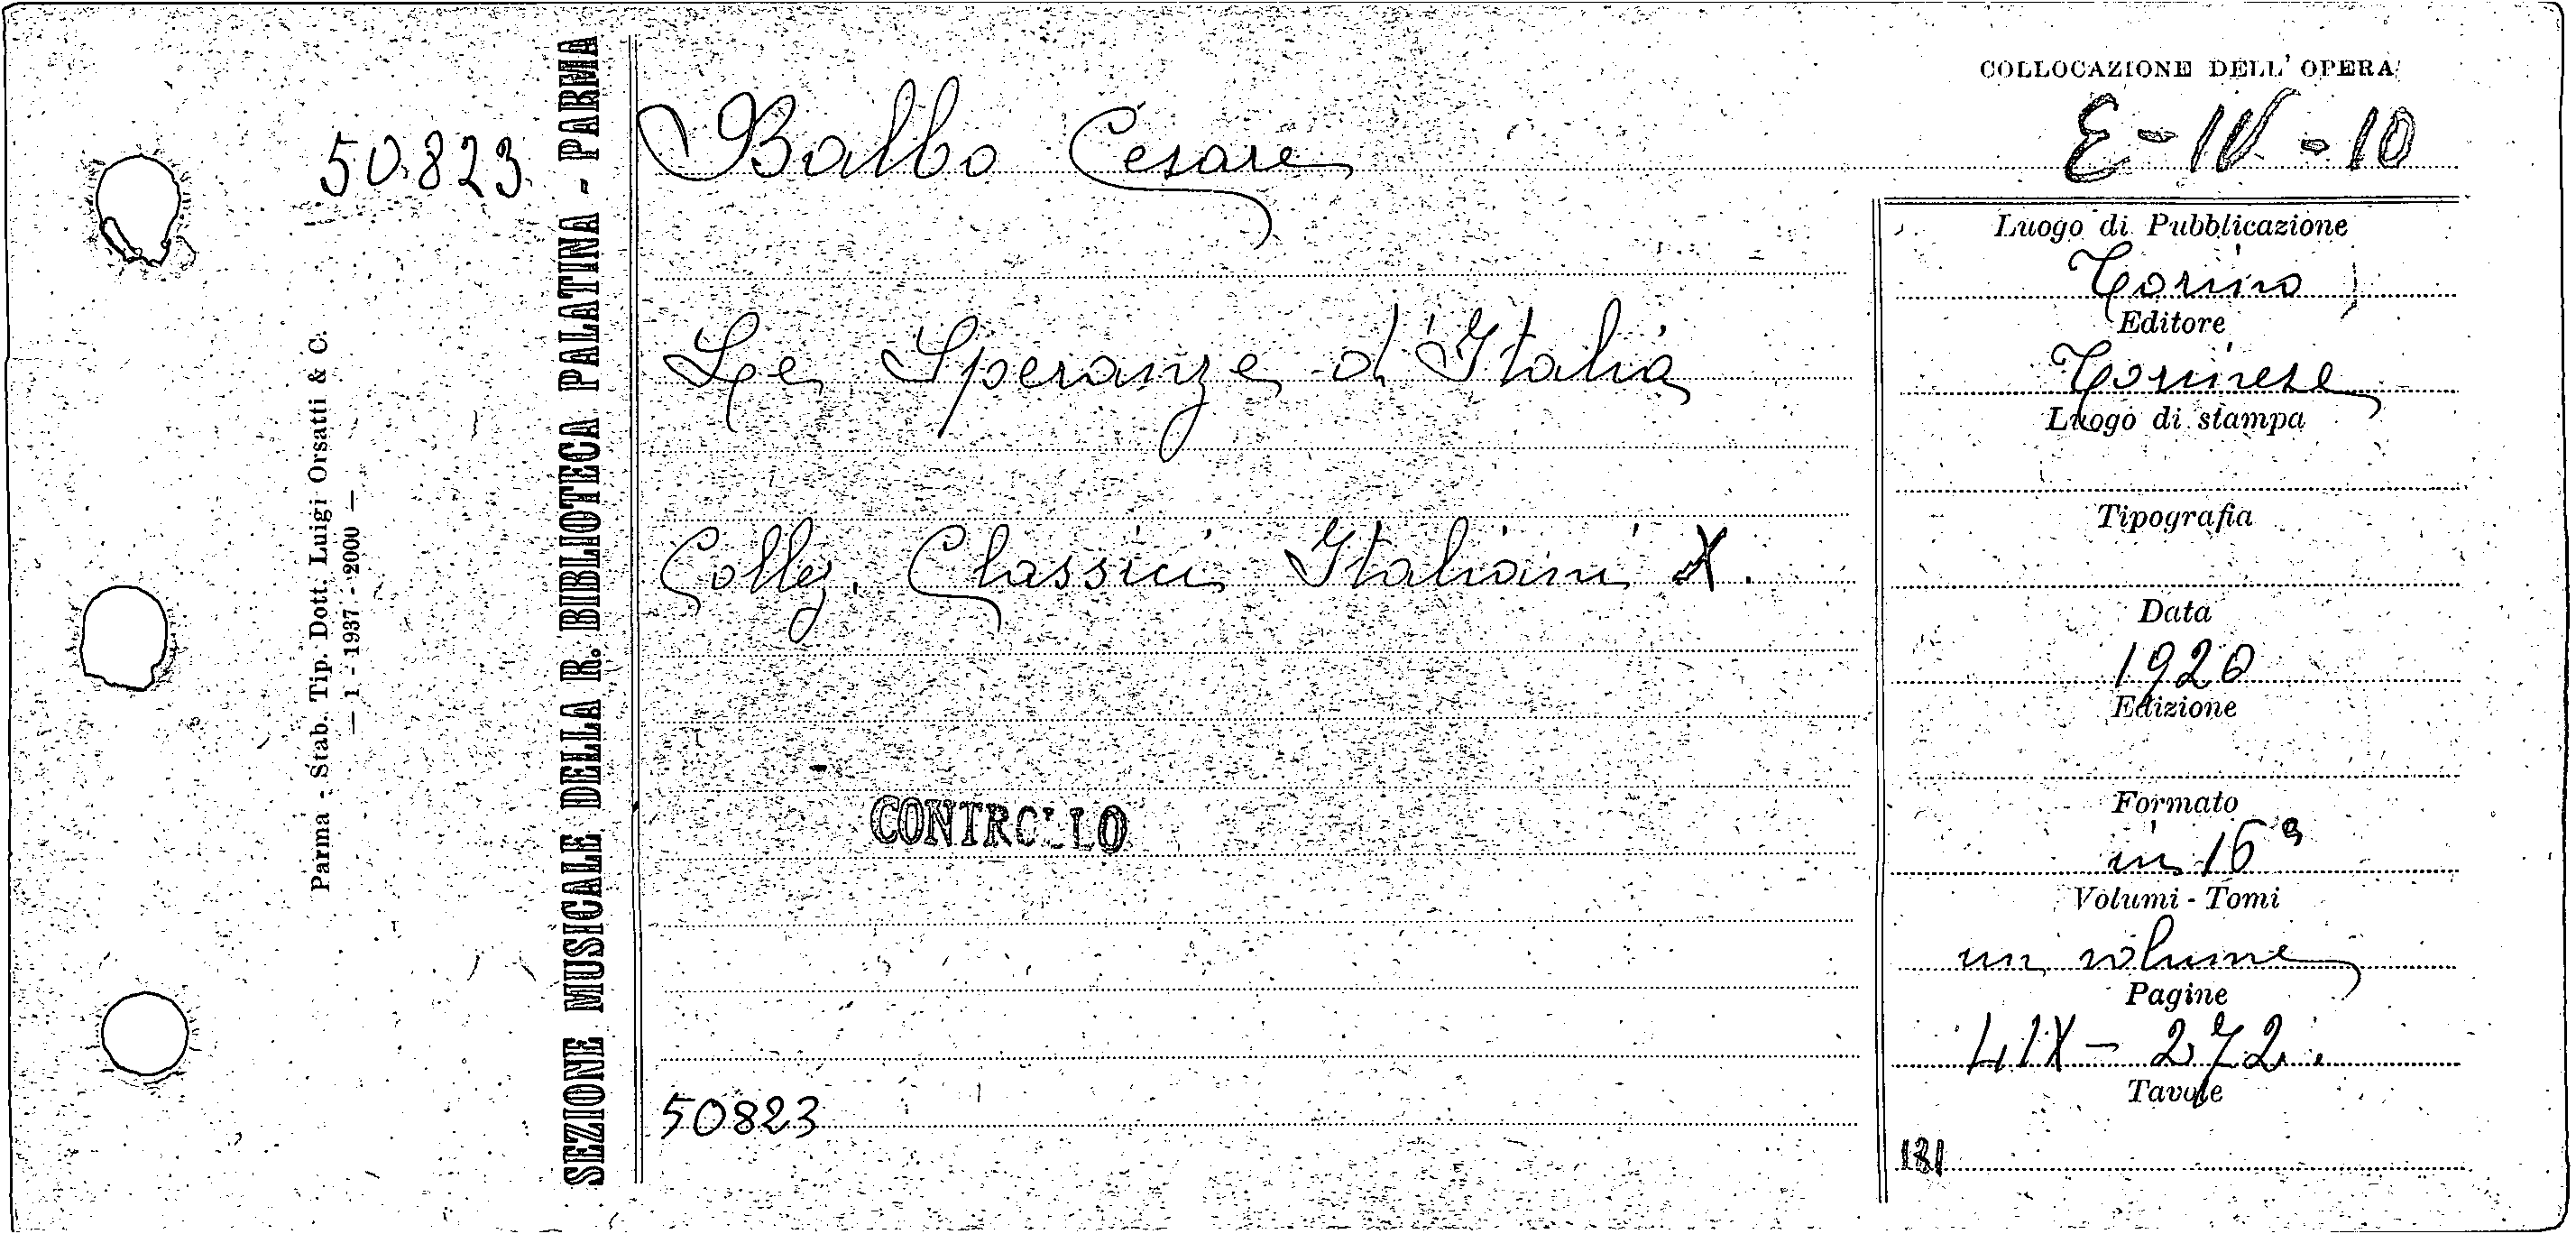 COLLOCAZIONE DELL' OPERA
E-IV-10
50.823
Balbo Cesare
Le Speranze d'Italia
Collez. Classici Italiani X.
CONTROLLO
50823
Luogo di Pubblicazione
Torino
Editore
Torinese
Luogo di stampa
Tipografia
Data
1920
Edizione
Formato
in 16°
Volumi - Tomi
un volume
Pagine
LIX - 272.
Tavole
181
SEZIONE MUSICALE DELLA R. BIBLIOTECA PALATINA - PARMA
Parma - Stab. Tip. Dott. Luigi Orsatti & C.
— 1 - 1937 - 2000 —